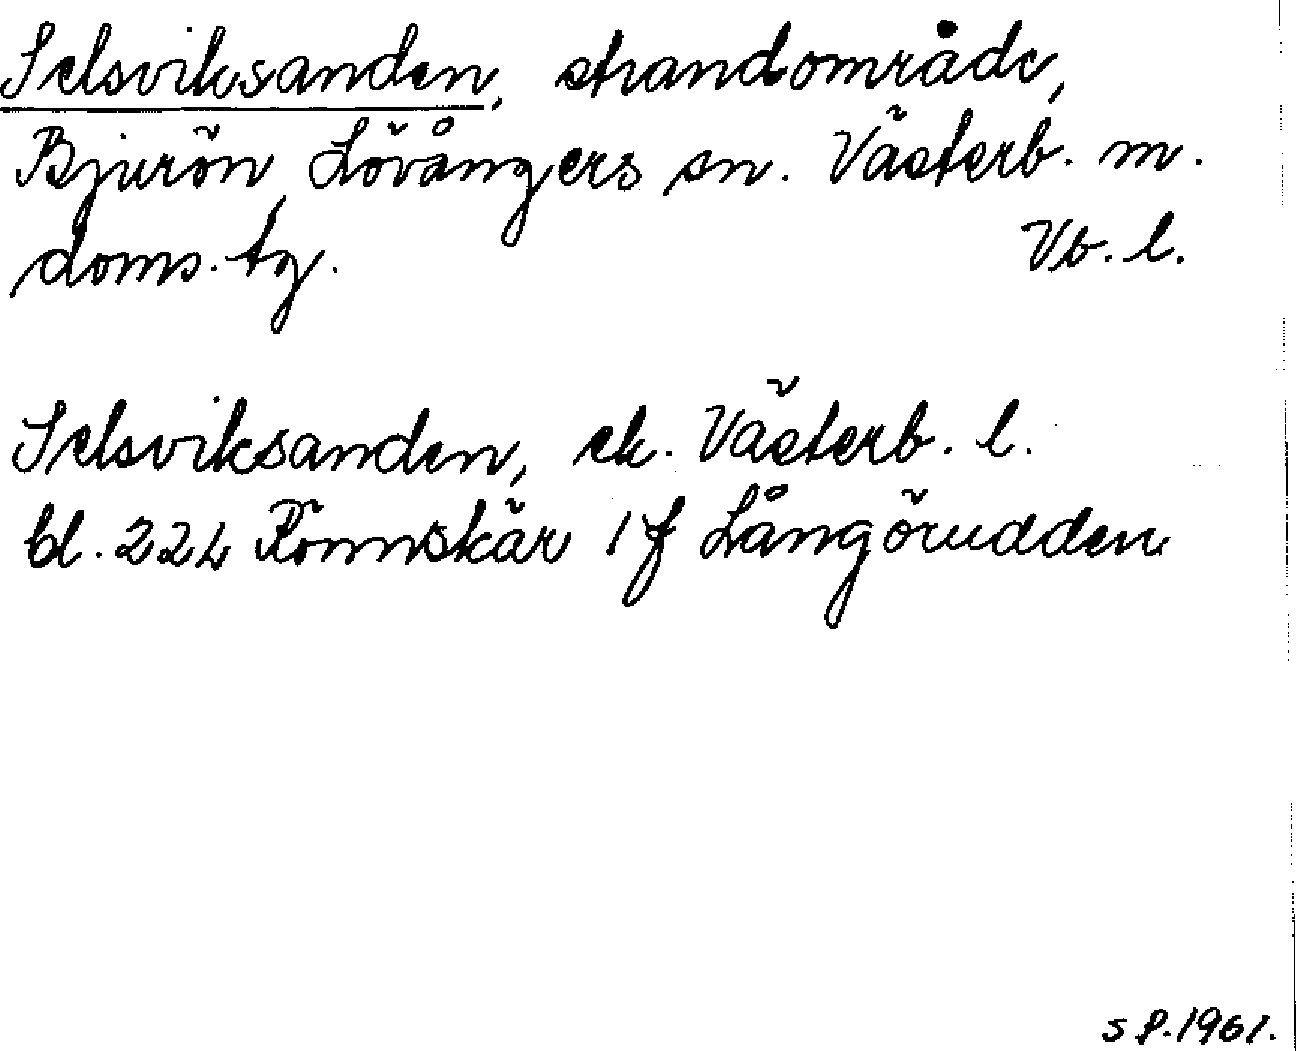 Selsviksanden, strandområde,
Bjurön, Lövångers sn. Västerb. m.
doms. tg. Vb. l.
Selsviksanden, ek. Västerb. l.
bl. 22L Rönnskär 1 f Långörudden
S P. 1961.